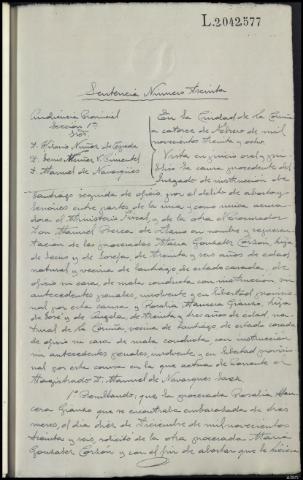 L.2042577
Sentencia Numero Treinta
Audiencia Provincial
Sección 1ª
Sres.
D. Hilario Nuñez de Cepeda
D. Denis Muñoz V. Pimentel
D. Manuel de Navasques
En la Ciudad de La Coruña
a catorce de febrero de mil
novecientos treinta y ocho
Vista en juicio oral y pú-
blico la causa procedente del
Juzgado de instrucción de
Santiago seguida de oficio, por el delito de aborto y
lesiones entre partes de la una y como unica acusa-
dora el Ministerio Fiscal, y de la otra el Procurador
Don Manuel de en nombre y represen-
tacion de las procesadas Maria Gonzalez hija
de y de Josefa de treinta y seis años de edad,
natural y vecina de Santiago de estado casada, de
oficio su casa, de mala conducta con instrucción sin
antecedentes penales, insolvente y en libertad provisio-
nal por esta causa y Rosalia Mancera Grando, hija
de José y de Angela de treinta y tres años de edad, na-
tural de La Coruña vecina de Santiago de estado casada
de oficio su casa de mala conducta, con instrucción
sin antecedentes penales, insolvente y en libertad provisio-
nal por esta causa en la que actua de Ponente el
Magistrado D. Manuel de Navasques
1º Resultando, que la procesada Rosalia Man-
cera Grando que se encontraba embarazada de tres
meses, el dia diez de Diciembre de mil novecientos
treinta y seis, solicitó de la otra procesada Maria
Gonzalez y con el fin de abortar que le hiciera